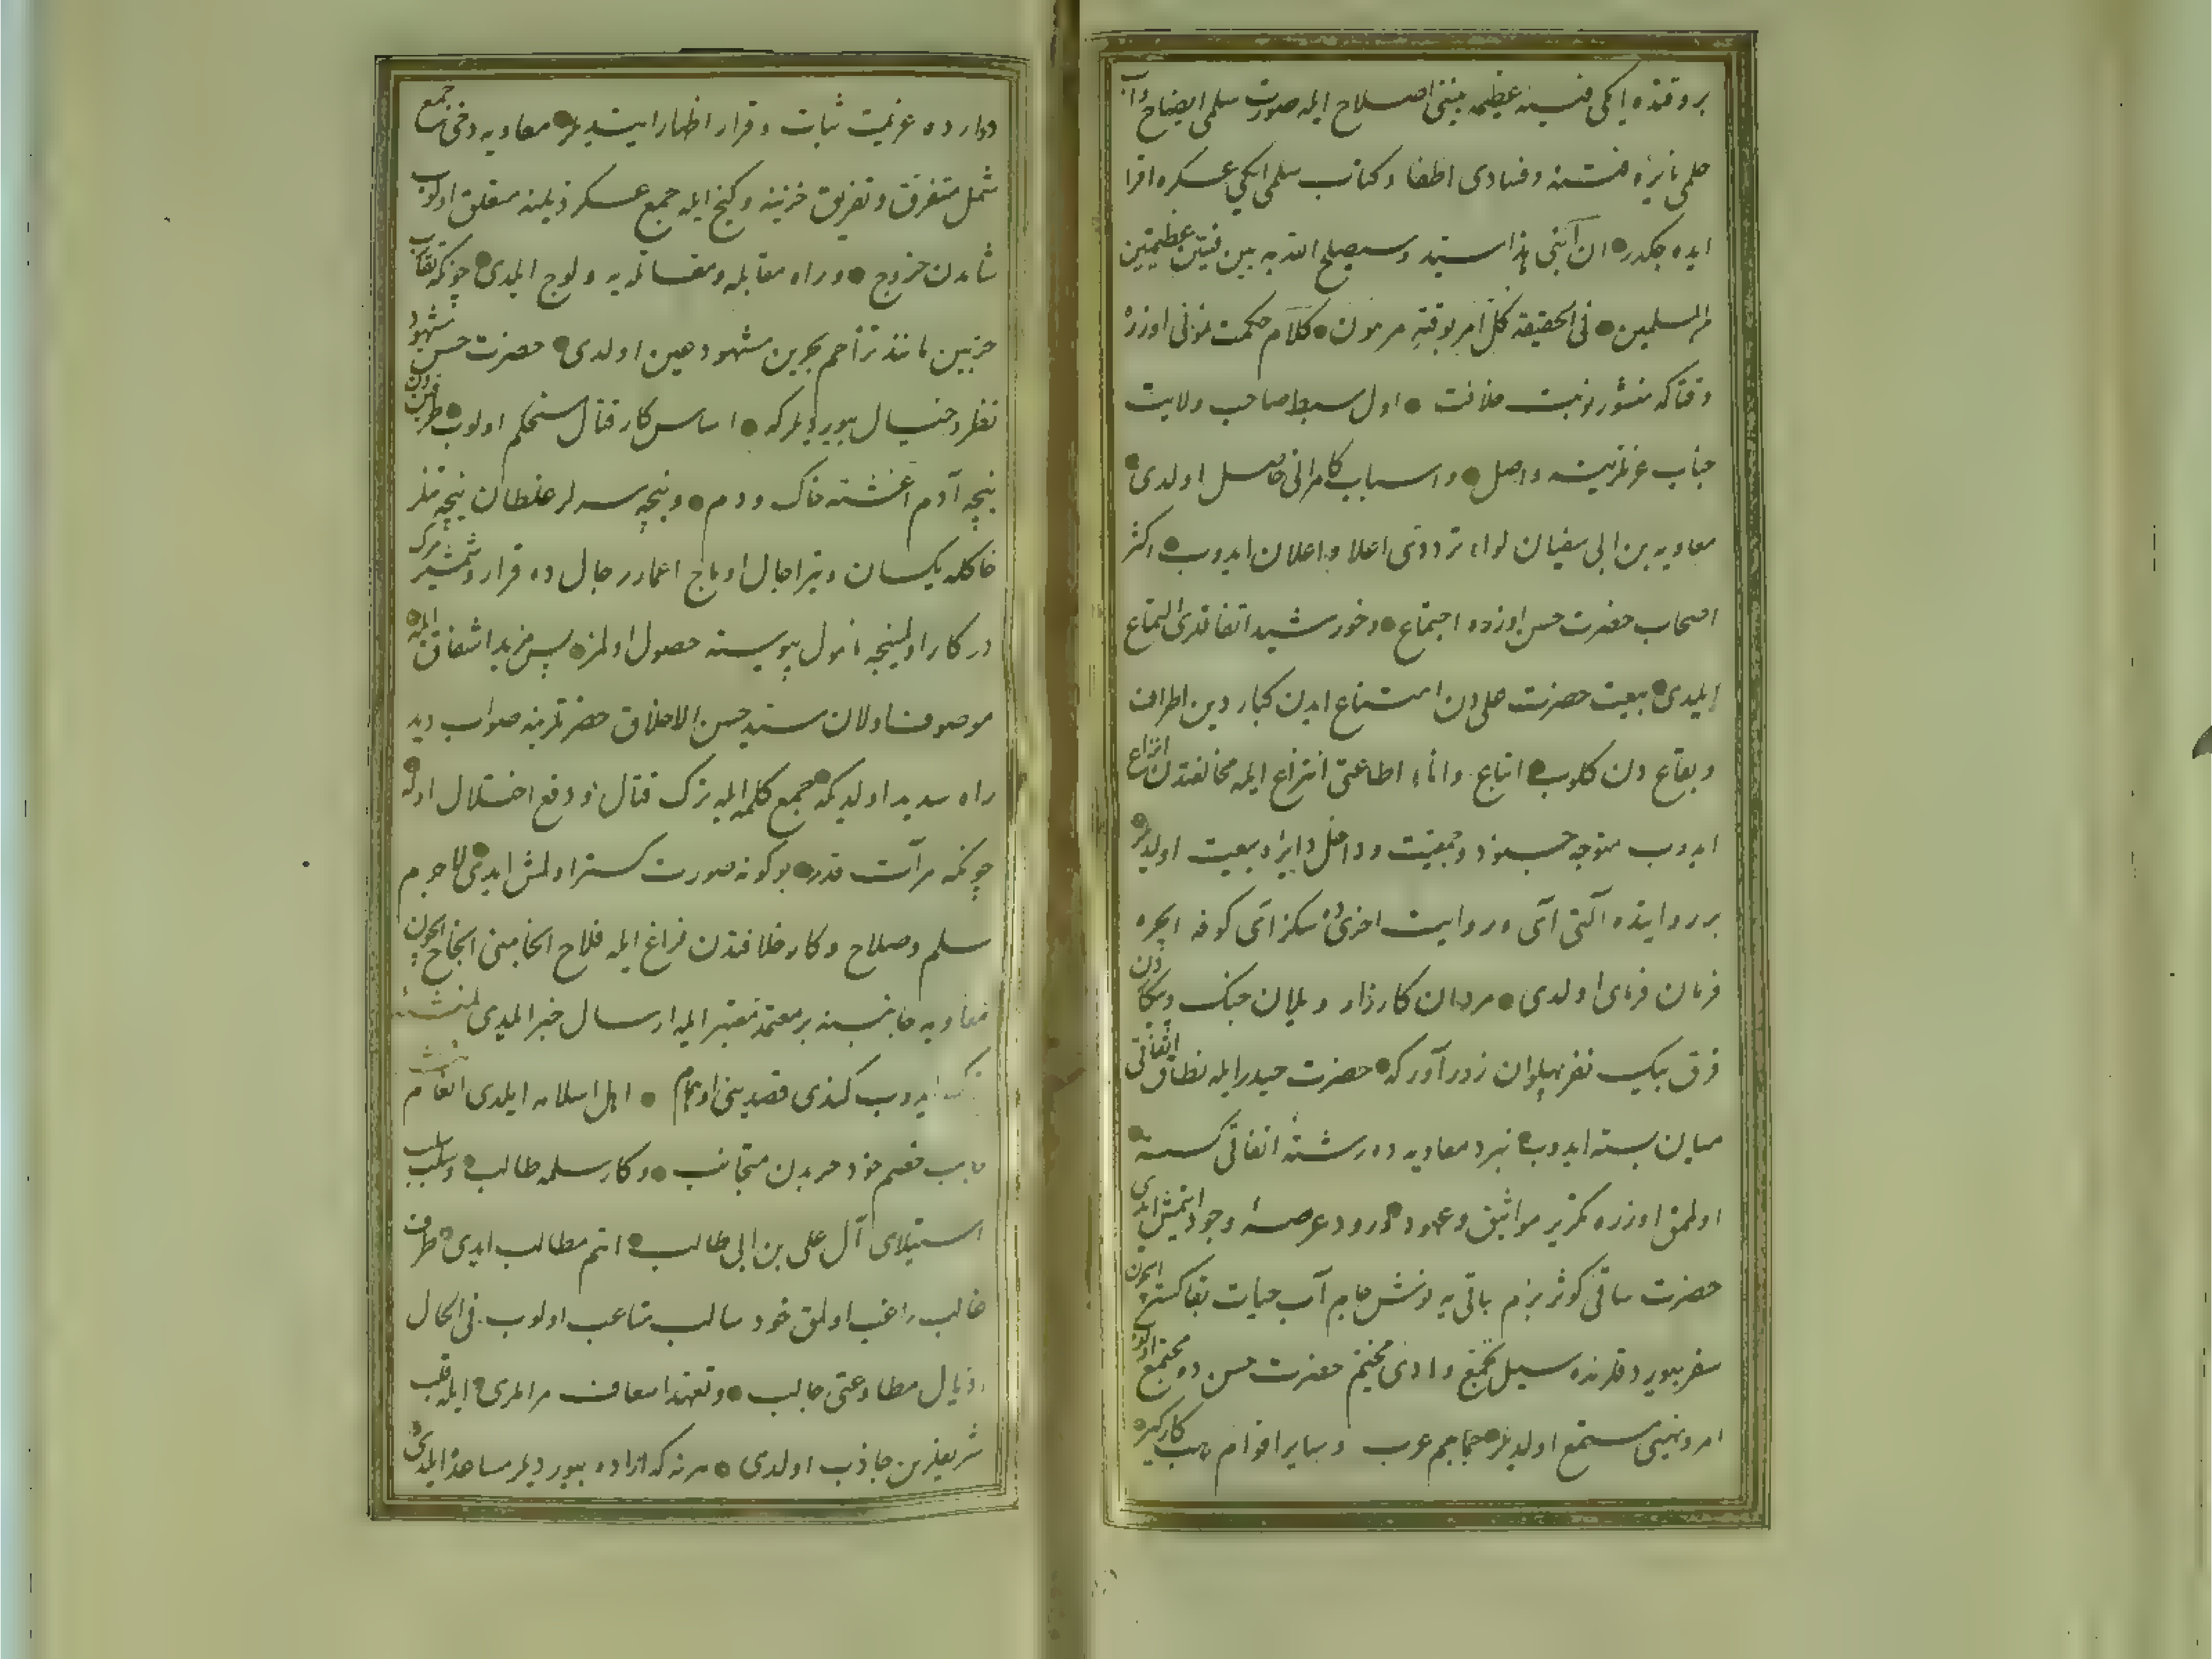 بر وقتده ایكی فئه عظیمه بیننی اصلاح ایله صورت سلمی ایضاح وآب
حلمی نایرۀ فتنه وفسادی اطفا وكتاب سلمی ایكی عسكره اقرا
ایده جكدر ان ابنی هذا سید وسیصلح الله به بین فئتین عظیمتین
من المسلمین فی الحقیقه كل امر بوقته مرهون كلام حكمت نمونی اوزره
وقتاكه منشور نوبت خلافت اول سبط صاحب ولایت
جناب عزتلرینه واصل واسباب كامرانی حاصل اولدی
معاویه بن ابی سفیان لواء ترددی اعلا واعلان ایدوب اكثر
اصحاب حضرت حسن اوزره اجتماع وخورشید اتفاقلری التماع
ایلدی بیعت حضرت علی دن امتناع ایدن كبار دین اطراف
وبقاع دن كلوب اتباع واناء اطاعتی انتزاع ایله مخالفتدن
ایدوب متوجه جنود وجمعیت وداخل دایرۀ بیعت اولدیلر
بر روایتده آلتی آی وروایت اخری ده سكز آی كوفه ایچره
فرمان فرمای اولدی مردان كارزار ویلان جنك وپیكاردن
قرق بیك نفر پهلوان زورآور كه حضرت حیدر ایله نطاق اتفاقی
میان بسته ایدوب نبرد معاویه ده رشتۀ اتفاقی كسسته
اولمق اوزره تكریر مواثیق وعهود درود عرصۀ وجود ایتمش ایدی
حضرت ساقی كوثر بزم باقی یه نوش جام آب حیات بقا ایچون
سفر بیوردقلرنده سیل مجمع وادی مخیم حضرت حسن ده مجتمع اولوب
امر ونهینی مستمع اولدیلر جماجم عرب وسایر اقوام
دوارده عزیمت ثبات وقرار اظهار ایتدیلر معاویه دخی جمع
شمل متفرق وتفریق خزینه وكنج ایله جمع عسكر ذیلنه متعلق اولوب
شامدن خروج وراه مقابله ومقاتله یه ولوج ایلدی چونكه تقارب
حزبین مانند تزاحم بحرین مشهود عین اولدی حضرت حسن شهود
نظر وخیال بیوردیلر كه اساس كار قتال مستحكم اولوب طرفین دن
نیجه آدم آغشته خاك ودم ونیجه سرلر غلطان نیجه تنلر
خاكله یكسان وتیر اجال اوماج اعمار رجال ده قرار وشمشیر مرك
در كار اولمینجه مأمول پیوسته حصول اولمز پس مزید اشفاق ایله
موصوف اولان سید حسن الاخلاق حضرتلرینه صواب دید
راه سدید اولدیكه جمع كلمه ایله ترك قتال ودفع اختلال اوله
چونكه مرآت قدره بو كونه صورت كستر اولمش ایدی لاجرم
سلم وصلاح وكار خلافتدن فراغ ایله فلاح انجامنی انجاح ایچون
معاویه جانبنه بر معتمد معتبر ایله ارسال خبر ایلدی
ایدوب كندی قصدینی اوهمام اهل اسلامه ایلدی انعام
خصم خود حربدن متجانب وكار سلمه طالب وسلب
استیلای آل علی بن ابی طالب اتم مطالب ایدی طرف
غالب راغب اولمق خود سالب متاعب اولوب فی الحال
اذیال مطاوعتی جالب وتعهد اسعاف مراملری ایله قلب
شریفلرین جاذب اولدی هر نه كه اراده بیوردیلر مساعده ایلدی